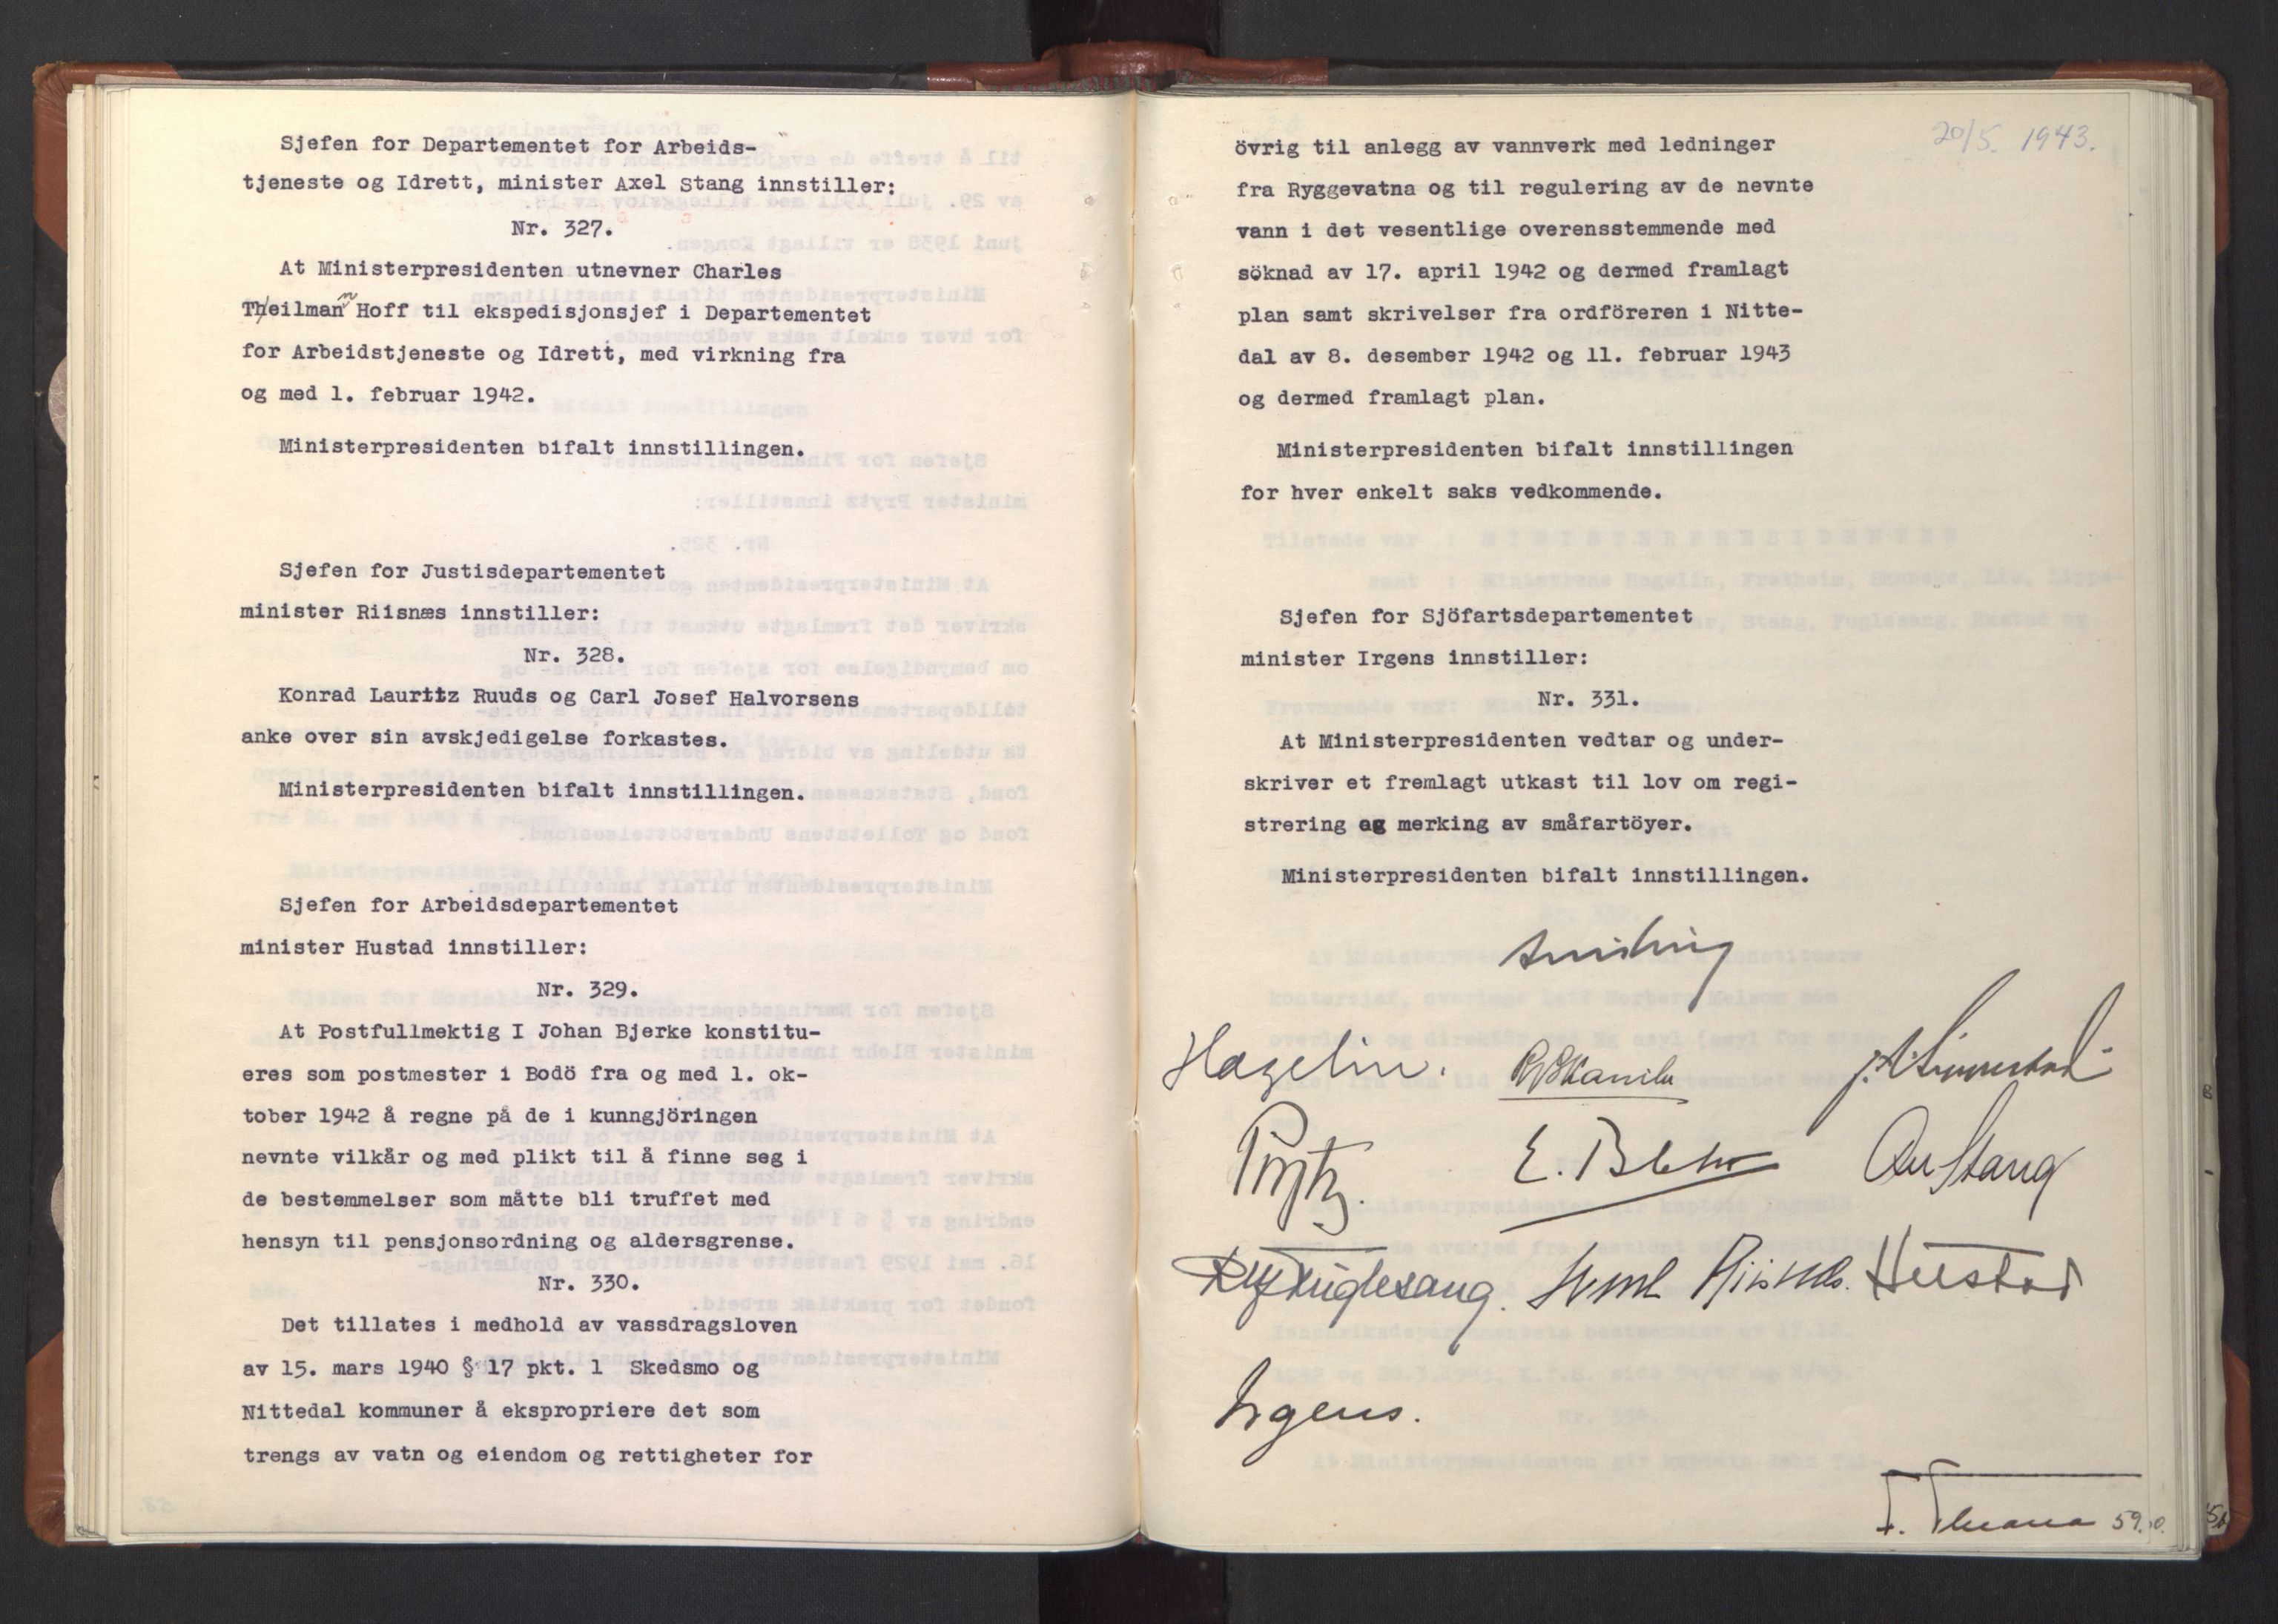 Sjefen for Departementet for Arbeids-
tjeneste og Idrett, minister Axel Stang innstiller:
Nr. 327.
At Ministerpresidenten utnevner Charles
Theilmann Hoff til ekspedisjonsjef i Departementet
for Arbeidstjeneste og Idrett, med virkning fra
og med 1. februar 1942.
Ministerpresidenten bifalt innstillingen.
Sjefen for Justisdepartementet
minister Riisnæs innstiller:
Nr. 328.
Konrad Lauritz Ruuds og Carl Josef Halvorsens
anke over sin avskjedigelse forkastes.
Ministerpresidenten bifalt innstillingen.
Sjefen for Arbeidsdepartementet
minister Hustad innstiller:
Nr. 329.
At Postfullmektig I Johan Bjerke konstitu-
eres som postmester i Bodö fra og med 1. ok-
tober 1942 å regne på de i kunngjöringen
nevnte vilkår og med plikt til å finne seg i
de bestemmelser som måtte bli truffet med
hensyn til pensjonsordning og aldersgrense.
Nr. 330.
Det tillates i medhold av vassdragsloven
av 15. mars 1940 § 17 pkt. 1 Skedsmo og
Nittedal kommuner å ekspropriere det som
trengs av vatn og eiendom og rettigheter for
20/5. 1943.
övrig til anlegg av vannverk med ledninger
fra Ryggevatna og til regulering av de nevnte
vann i det vesentlige overensstemmende med
söknad av 17. april 1942 og dermed framlagt
plan samt skrivelser fra ordföreren i Nitte-
dal av 8. desember 1942 og 11. februar 1943
og dermed framlagt plan.
Ministerpresidenten bifalt innstillingen
for hver enkelt saks vedkommende.
Sjefen for Sjöfartsdepartementet
minister Irgens innstiller:
Nr. 331.
At Ministerpresidenten vedtar og under-
skriver et fremlagt utkast til lov om regi-
strering og merking av småfartöyer.
Ministerpresidenten bifalt innstillingen.
Hagelin.
Prytz.
E. Blehr
Stang
Fuglesang.
Riisnæs.
Hustad
Irgens.